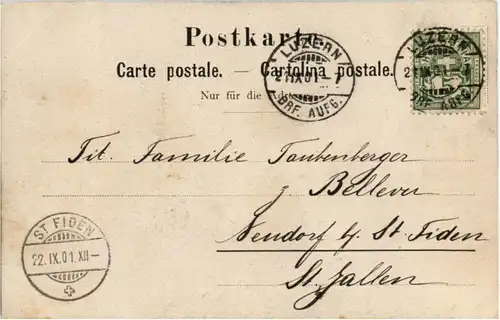 Postkarte
Carte postale. — Cartolina postale.
Nur für die
LUZERN
21.IX.01.-7
BRF. AUFG.
LUZERN
BRF. AUFG.
Tit. Familie Taubenberger
z Bellevue
Neudorf b. St. Fiden
St. Gallen
ST FIDEN
22.IX.01.XII-